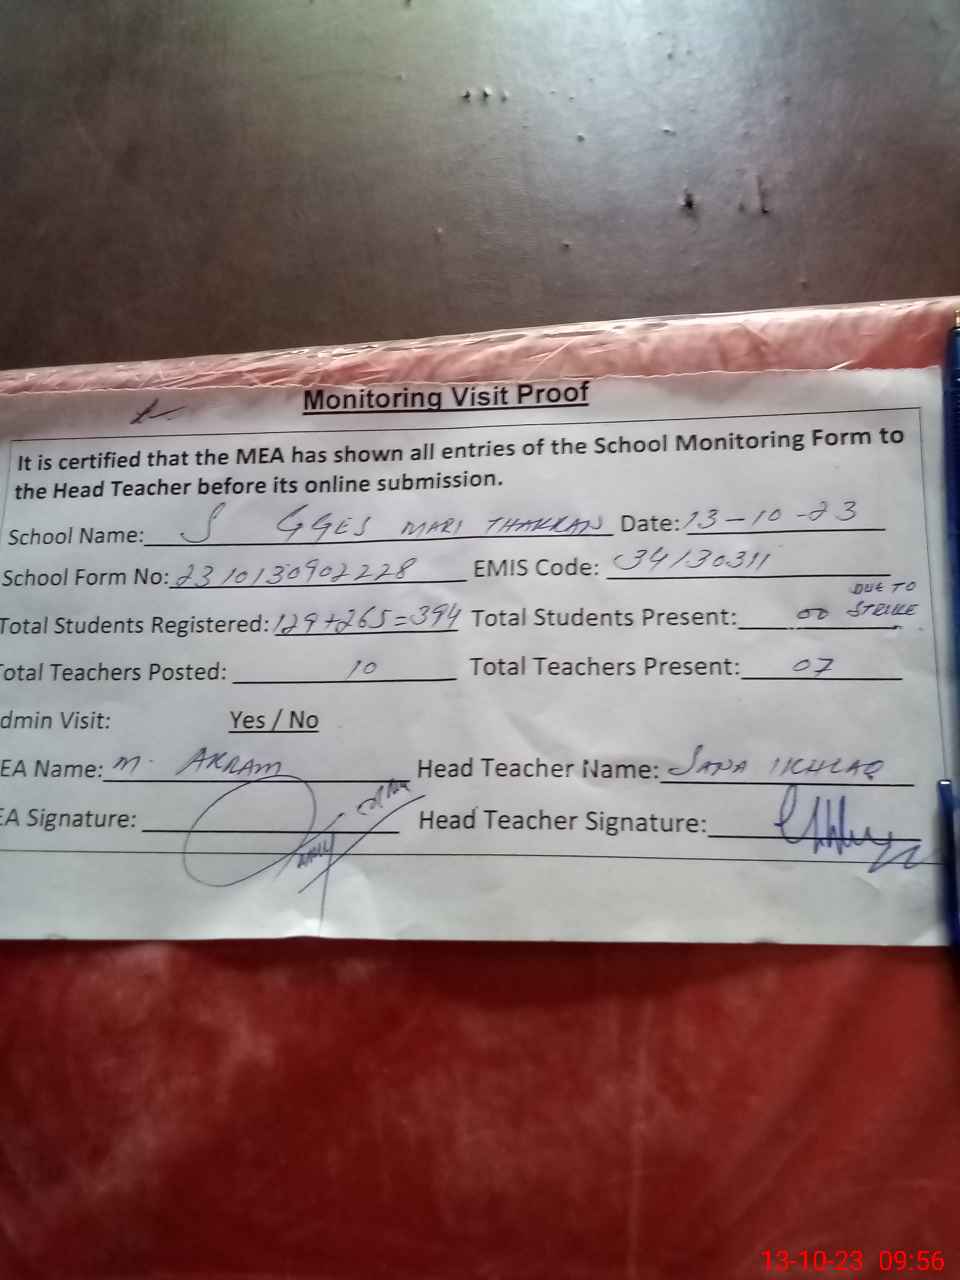 Monitoring Visit Proof
It is certified that the MEA has shown all entries of the School Monitoring Form to
the Head Teacher before its online submission.
School Name: S GGES MARI THAKRAN Date: 13-10-23
School Form No: 2310130902228 EMIS Code: 34130311
Total Students Registered: 129+265=394 Total Students Present: 00 DUE TO STRIKE
otal Teachers Posted: 10 Total Teachers Present: 07
dmin Visit: Yes / No
EA Name: M. AKRAM Head Teacher Name: SANA
EA Signature: Head Teacher Signature:
13-10-23 09:56